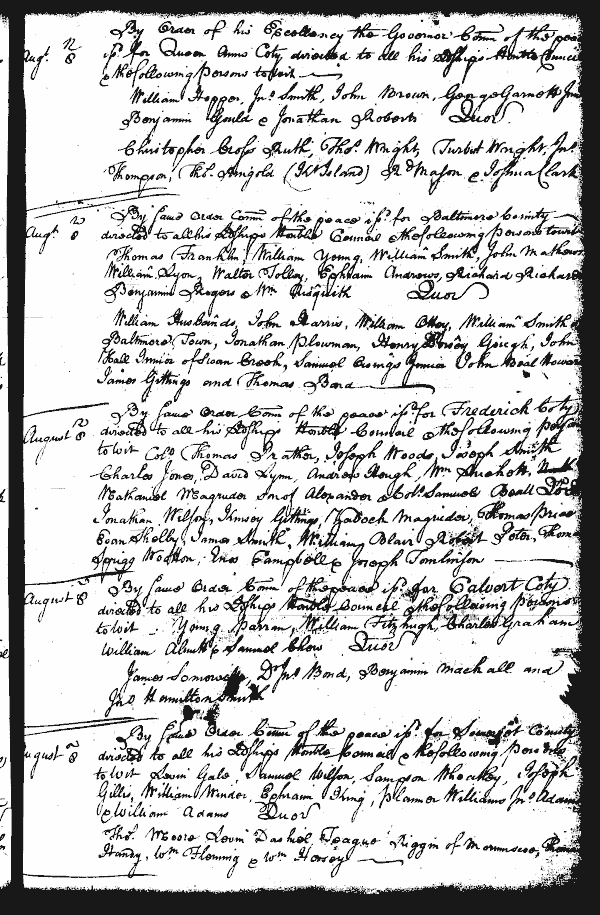 By Order of his Excellency the Governor Comn of the peace
Augt. 8 isd. for Queen Anns Coty, directed to all his Ldships Honble Council
& the following persons towit
William Hopper, Jno. Smith, John Brown, George Garnett
Benjamin Gould & Jonathan Roberts Quor
Christopher Cross Ruth Thos. Wright, Turbut Wright, Jno.
Thompson, Thos. Ringold (Kt Island) Rd Mason & Joshua Clark
By same Order Comn of the peace isd. for Baltimore County
Augt. 8 directed to all his Ldships Honble Council & the following persons towit
Thomas Franklin, William Young, William Smith, John Mathews
William Lyon, Walter Tolley, Ephraim Andrews, Richard Richards
Benjamin Rogers & Wm Quor
William Husbands, John Harris, William Ottey, William Smith of
Baltimore Town, Jonathan Plowman, Henry Gough, John
Hall Junior of Swan Creek, Samuel Owings Junior John Beal
James Gittings and Thomas Bond
By same Order Comn of the peace isd. for Frederick Coty
August 8 directed to all his Ldships Honble Council & the following persons
to wit Colo Thomas Prather, Joseph Wood, Joseph Smith
Charles Jones, David Lynn, Andrew Heugh, Wm
Nathaniel Magruder Son of Alexander & Colo. Samuel Beall
Jonathan Wilson, Kinsey Gittings, Magruder, Thomas Price
Evan Shelby, James Smith, William Blair Robert Peter,
Sprigg Wootton, Eneas Campbell & Joseph Tomlinson
By same Order Comn of the peace isd. for Calvert Coty
August 8 directed to all his Ldships Honble Council & the following persons
to wit Young Parran, William Fitzhugh, Charles Graham
William & Samuel Chew Quor
James Somervill, Dr Jno Bond, Benjamin Mackall and
Jno. Hamilton Smith
By same Order Comn of the peace isd. for Somerset County
August 8 directed to all his Ldships Honble Council & the following persons
to wit Levin Gale, Samuel Wilson, Sampson Wheatley, Joseph
Gillis, William Winder, Ephraim King, Planner Williams Jno. Adams
& William Adams Quor
Thos. Moore Levin Dashiel Teague Riggin of
Handy, Wm Fleming & Wm Horsey